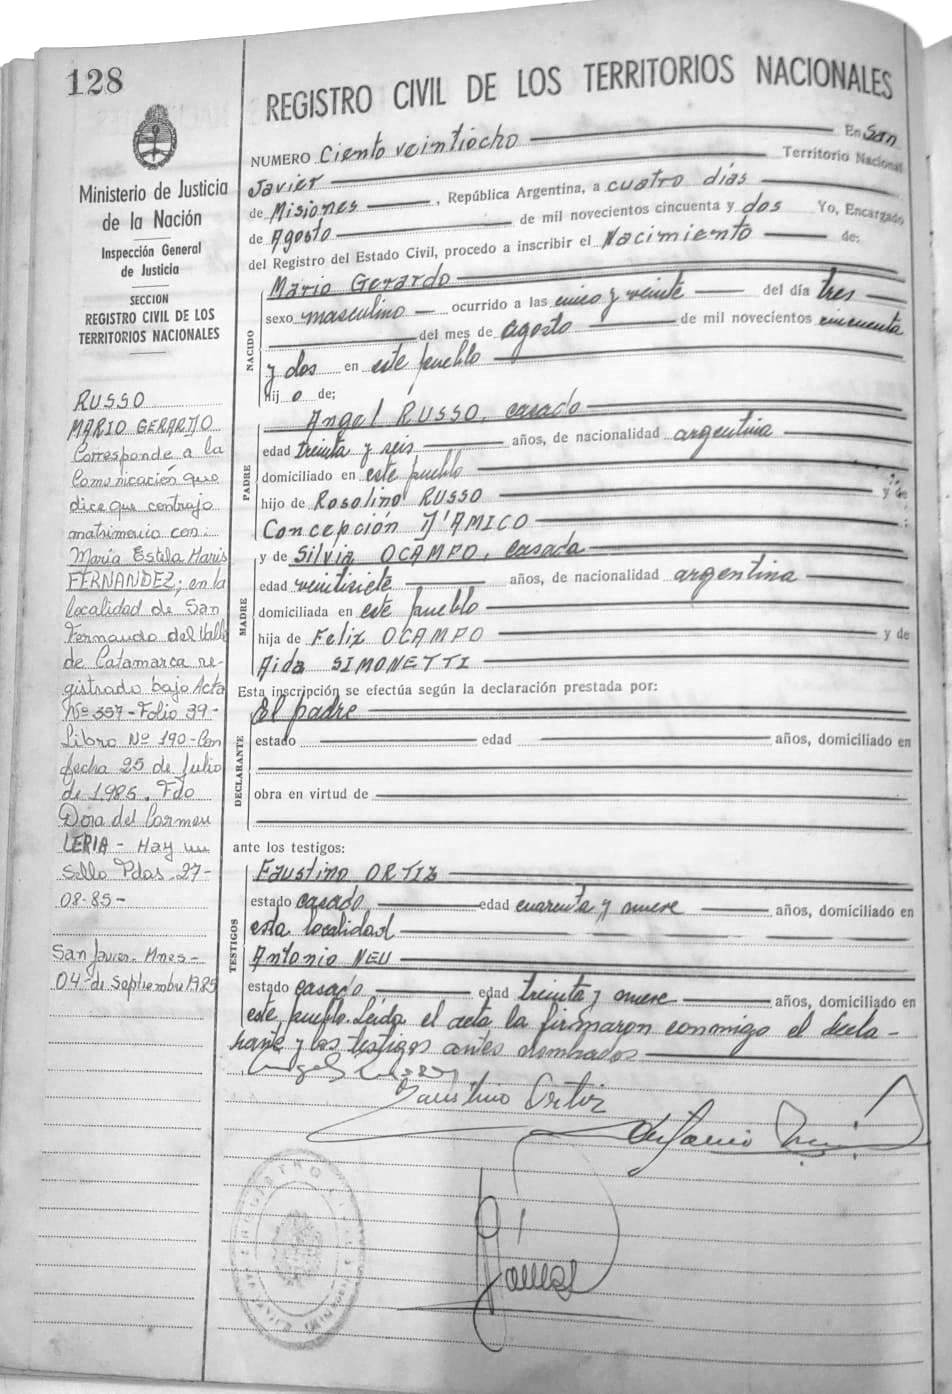 128
Ministerio de Justicia
de la Nación
Inspección General
de Justicia
SECCION
REGISTRO CIVIL DE LOS
TERRITORIOS NACIONALES
RUSSO
MARIO GERARDO
Corresponde a la
Comunicación que
dice que contrajo
matrimonio con:
María Estela Maris
FERNANDEZ; en la
localidad de San
Fernando del Valle
de Catamarca re-
gistrado bajo Acta
Nº 357-Folio 39-
Libro Nº 190-Con
fecha 25 de Julio
de 1985. Fdo
Dora del Carmen
LERIA - Hay un
Sello Pdas. 27-
08-85-
San Javier. Mnes-
04 de Septiembre 1985
REGISTRO CIVIL DE LOS TERRITORIOS NACIONALES
NUMERO Ciento veintiocho En San
Javier Territorio Nacional
de Misiones, República Argentina, a cuatro días
de Agosto de mil novecientos cincuenta y dos Yo, Encargado
del Registro del Estado Civil, procedo a inscribir el Nacimiento de:
NACIDO
Mario Gerardo
sexo masculino ocurrido a las cinco y veinte del día tres
del mes de agosto de mil novecientos cincuenta
y dos en este pueblo
hijo de:
PADRE
Angel RUSSO, casado
edad treinta y seis años, de nacionalidad argentina
domiciliado en este pueblo
hijo de Rosolino RUSSO y de
Concepción D'AMICO
MADRE
y de Silvia OCAMPO, casada
edad veintisiete años, de nacionalidad argentina
domiciliada en este pueblo
hija de Felix OCAMPO y de
Aida SIMONETTI
Esta inscripción se efectúa según la declaración prestada por:
DECLARANTE
El padre
estado edad años, domiciliado en
obra en virtud de
ante los testigos:
TESTIGOS
Faustino ORTIZ
estado casado edad cuarenta y nueve años, domiciliado en
esta localidad
Antonio NEU
estado casado edad treinta y nueve años, domiciliado en
este pueblo. Leída el acta la firmaron conmigo el decla-
rante y los testigos antes nombrados
Faustino Ortiz